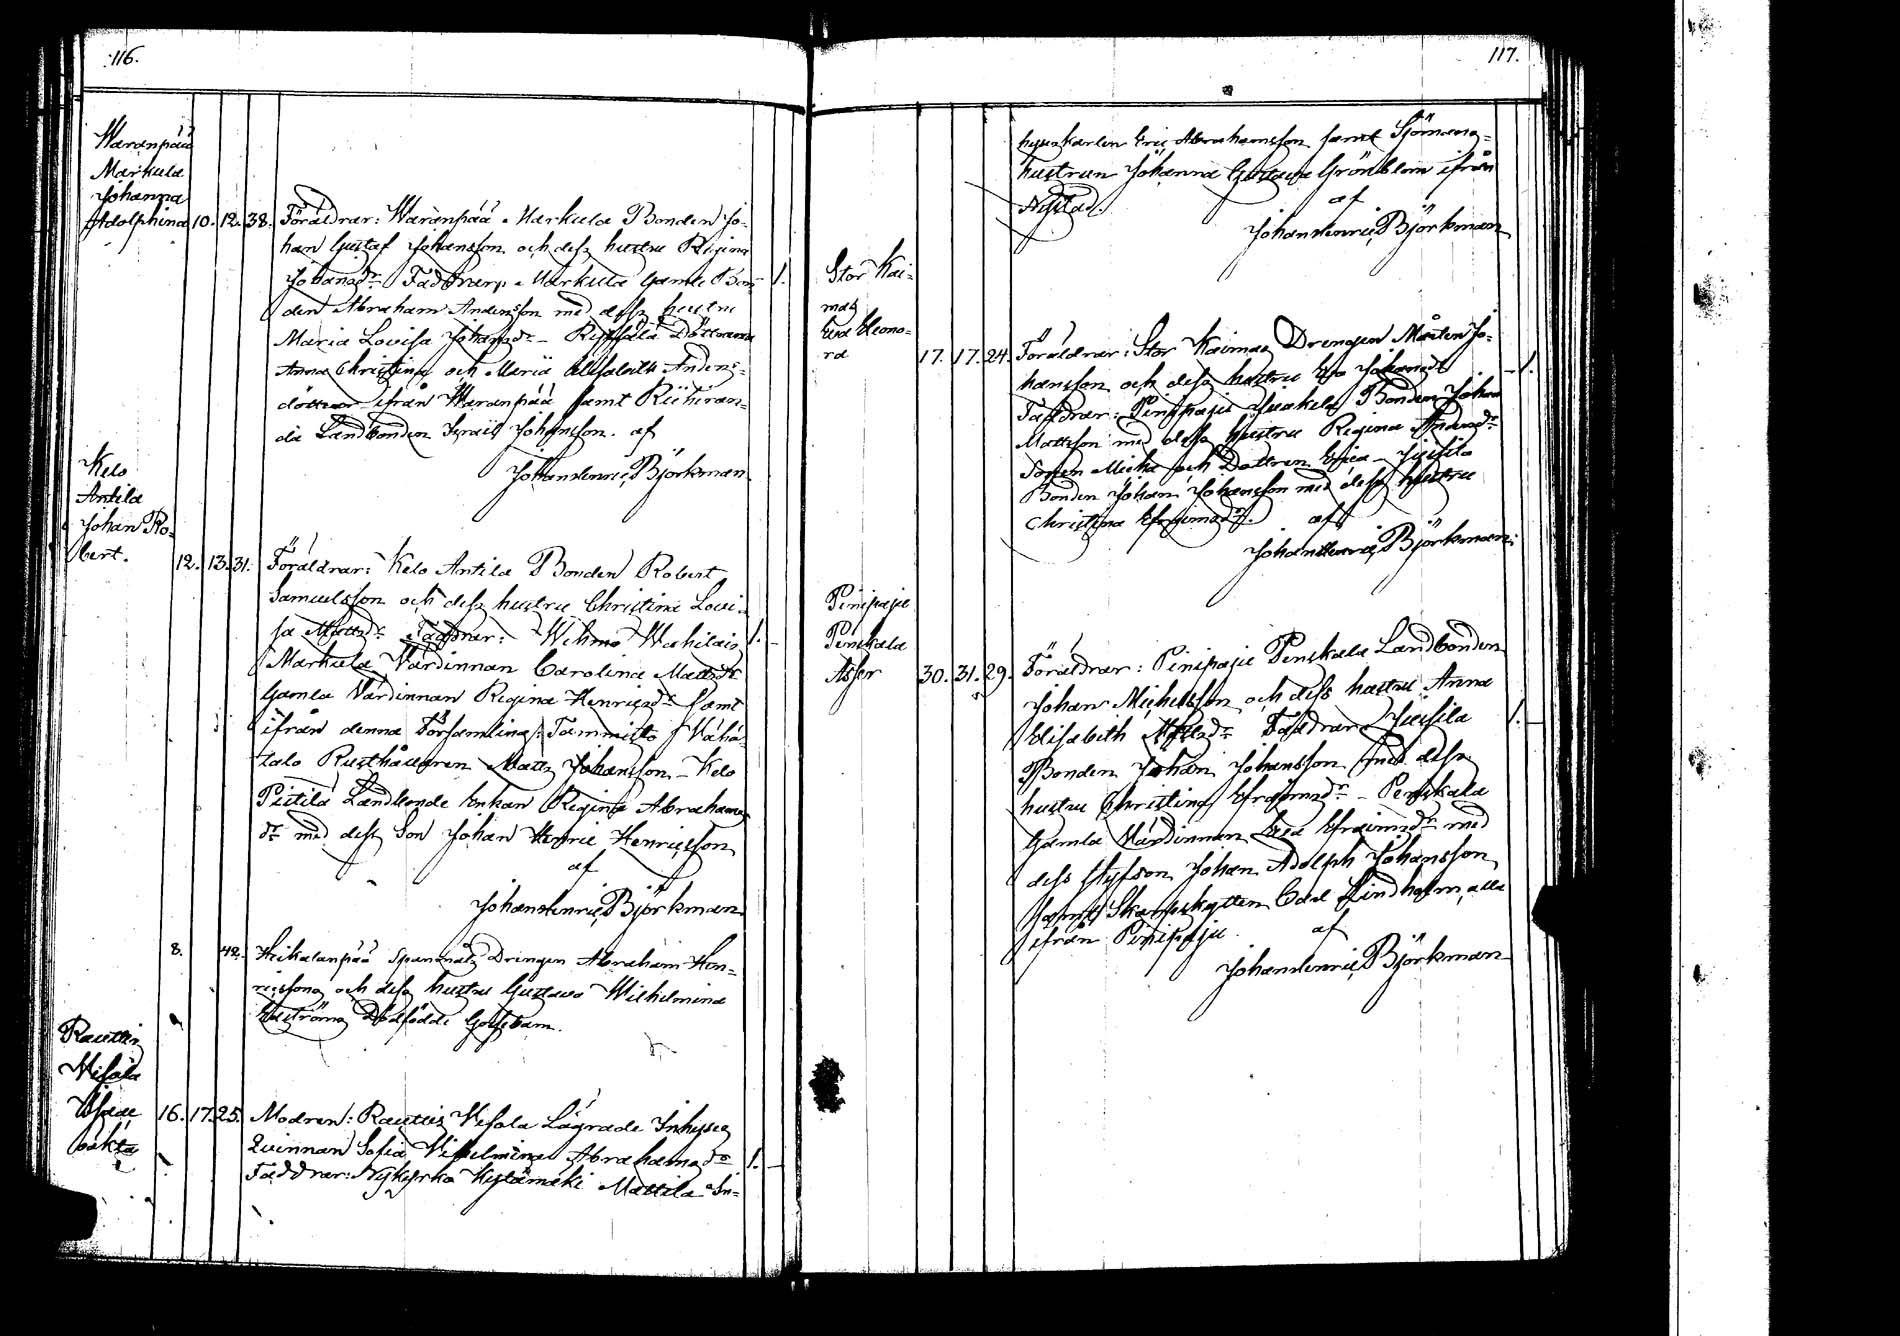 116.
Waranpää
Markula
Johanna
Adolphina 10. 12. 38. Föräldrar: Waranpää Markula Bonden Jo-
han Gustaf Johansson och dess hustru Regina
Johansdr Faddrar: Markula Gamle Bon- 1.
den Abraham Andersson med dess hustru
Maria Lovisa Johansdr – Döttrarna
Anna Christina och Maria Elisabeth Anders-
döttrar ifrån Waranpää samt
Landbonden Israel Johansson. af
Johan Henric Björkman
Kelo
Antila
Johan Ro-
bert. 12. 13. 31. Föräldrar: Kelo Antila Bonden Robert
Samuelsson och dess hustru Christina Lovi-
sa Mattsdr Faddrar: Wehmo Wahilais 1.
Markula Värdinnan Carolina Mattsdr
Gamla Värdinnan Regina Henricsdr samt
ifrån denna Församling: Tammisto Vähä-
talo Rusthållaren Matts Johansson – Kelo
Pietilä Landbonde Enkan Regina Abrahams
dr med dess Son Johan Henric Henricsson
af
Johan Henric Björkman
8. 42. Heikalanpää Spannmåls Drengen Abraham Hen-
ricssons och dess hustru Gustava Wilhelmina
Enströms Dödfödde Gossebarn.
Rautis
Vesala
oäkta 16. 17. 25. Modren: Rautis Vesala Lägrade Inhyses
Qvinnan Sofia Vilhelmina Abrahamsdr 1.
Faddrar: Nykyrko Kytämäki Mattila In-
117.
hyseskarlen Eric Abrahamsson samt Sjömans-
hustrun Johanna Gustava Grönblom ifrån
Nystad. af
Johan Henric Björkman
Stor Kai-
mas
Eva Eleono-
ra 17. 17. 24. Föräldrar: Stor Kaimas Drengen Mårten Jo-
hansson och dess hustru Eva Johansdr 1.
Faddrar: Pinipaju Bonden Johan
Mattsson med dess hustru Regina Andersdr
Sonen Micke och Dottren Eva – Jussila
Bonden Johan Johansson med dess hustru
Christina Efraimsdr. af
Johan Henric Björkman
Pinipaju
Penskala
Asser 30. 31. 29. Föräldrar: Pinipaju Penskala Landbonden
Johan Michelsson och dess hustru Anna
Elisabeth Mattsdr Faddrar Jussila 1.
Bonden Johan Johansson med dess
hustru Christina Efraimsdr – Penskala
Gamla Värdinnan Eva Efraimsdr med
dess Styfson Johan Adolph Johansson
samt Skarpskytten Carl Lindholm, alla
ifrån Pinipaju. af
Johan Henric Björkman